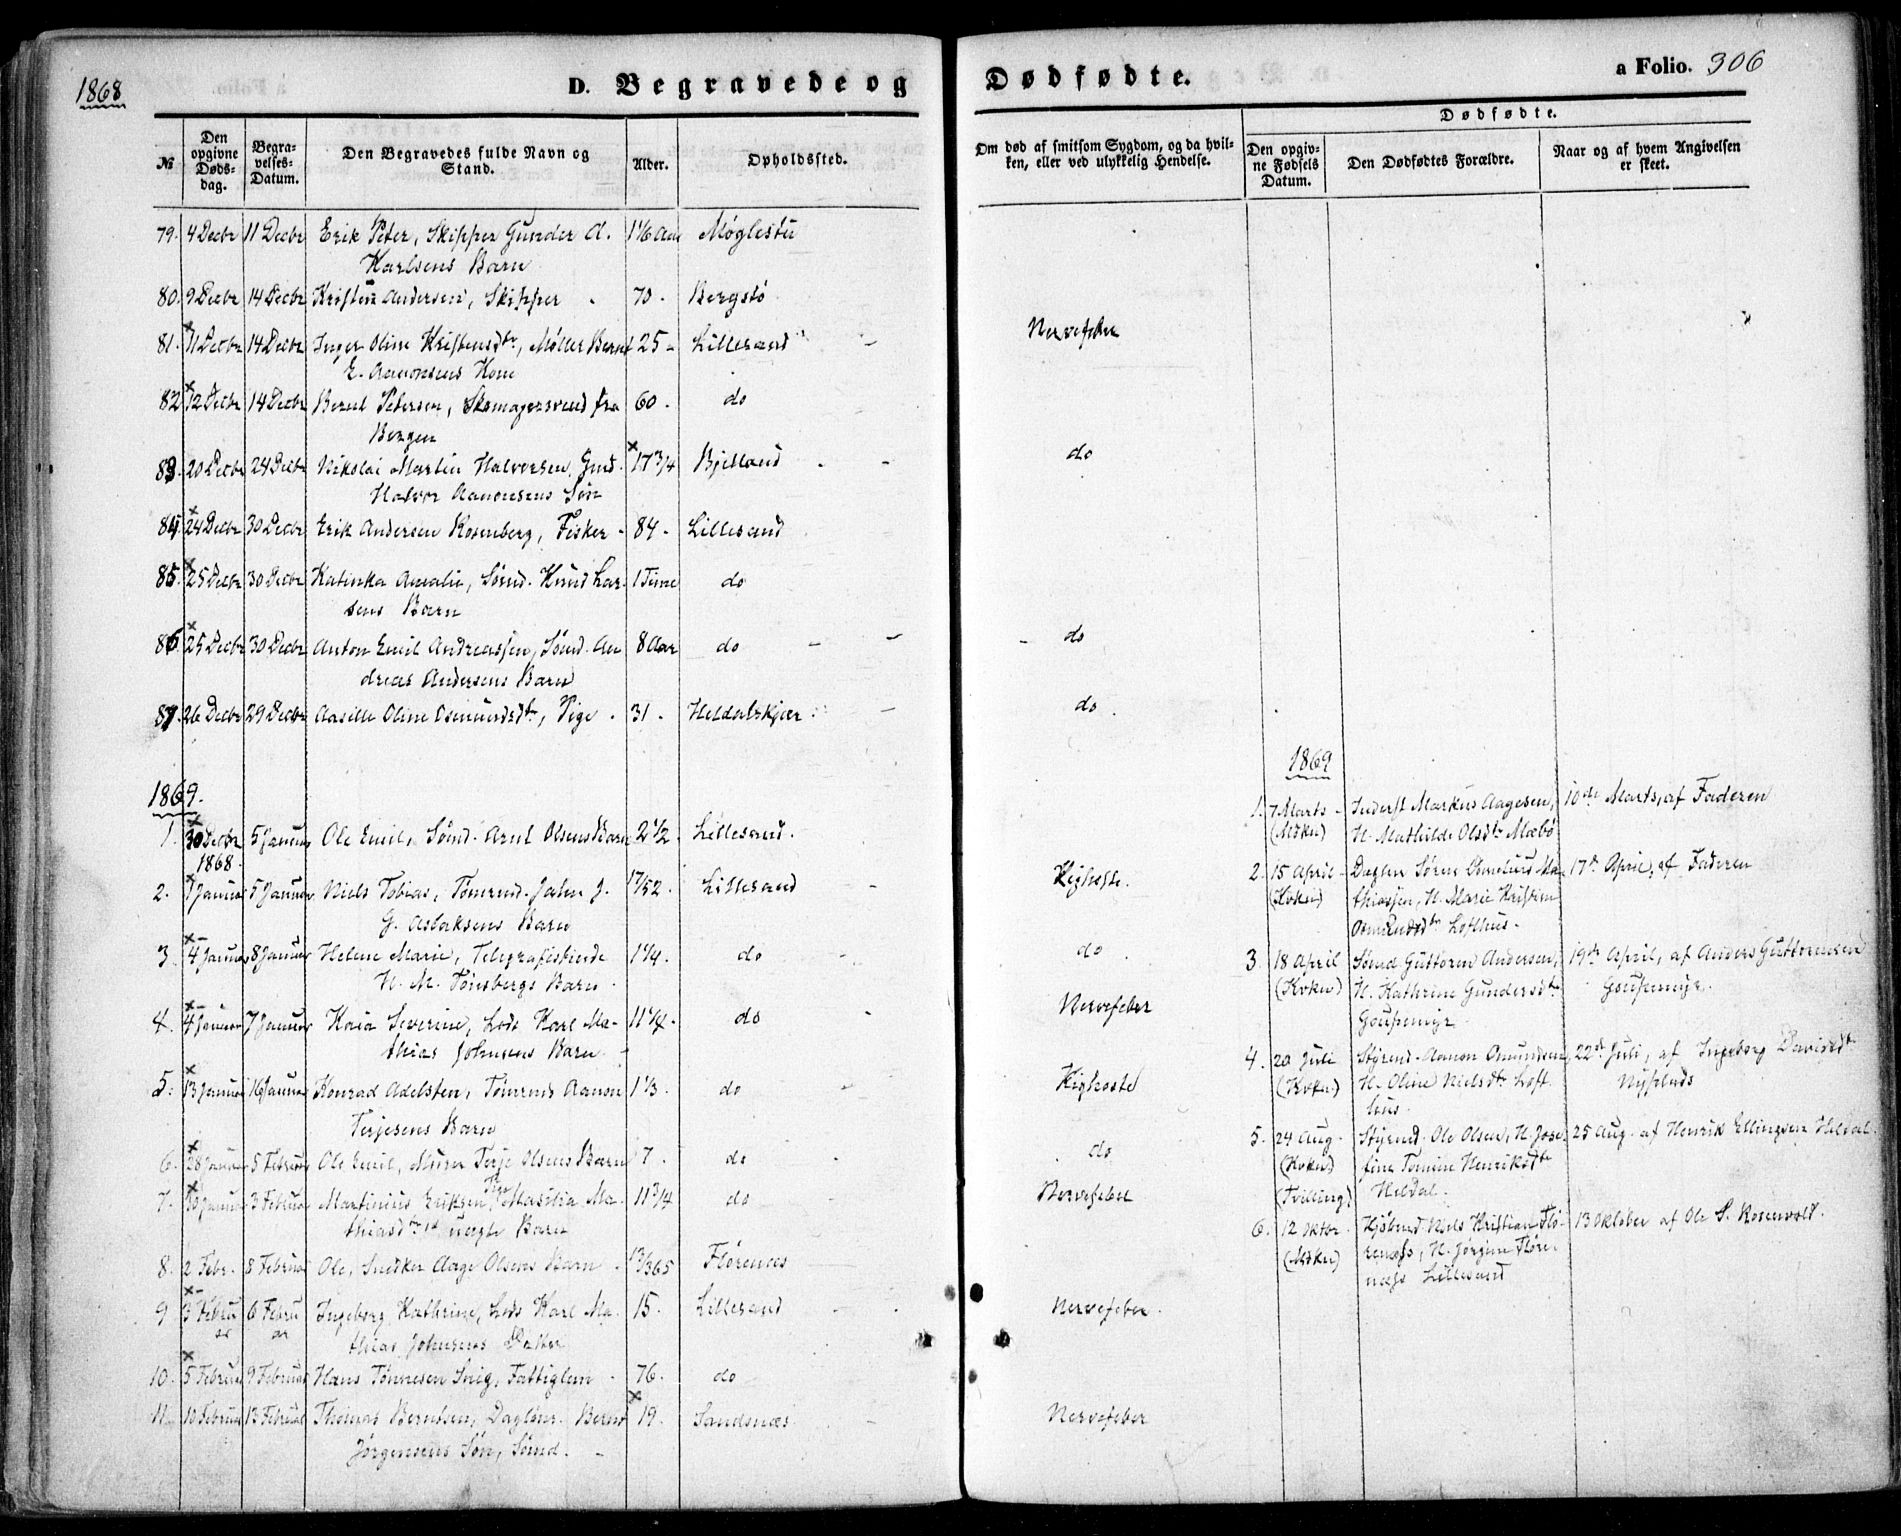 1868
D. Begravede og Dødfødte.
a Folio. 306
№
Den opgivne Døds-dag.
Begra-velses-Datum.
Den Begravedes fulde Navn og Stand.
Alder.
Opholdssted.
Om død af smitsom Sygdom, og da hvil-ken, eller ved ulykkelig Hendelse.
Dødfødte.
Den opgiv-ne Fødsels Datum.
Den Dødfødtes Forældre.
Naar og af hvem Angivelsen er skeet.
79. 4 Decbr 11 Decbr Erik Peter, Skipper Gunder A. 1 1/6 Aar Møglestu
Karlsens Barn
80. 9 Decbr 14 Decbr Kristen Andersen, Skipper 70. Bergstø
81. 11 Decbr 14 Decbr Inger Oline Kristensdtr, Møller Bernt 25 - Lillesand - Nervefeber
E. Aanonsens Kone
82 12 Decbr 14 Decbr Bernt Petersen, Skomagersvend fra 60. do
Bergen
83. 20 Decbr 24 Decbr Nikolai Martin Halvorsen, Gmd. 17 3/4 Bjelland - do
Halvor Aanonsens Søn
84 24 Decbr 30 Decbr Erik Andersen Rosenberg, Fisker - 84 - Lillesand
85. 25 Decbr 30 Decbr Katinka Amalie, Sømd. Knud Lar- 1 Time do
sens Barn
86. 25 Decbr 30 Decbr Anton Emil Andreassen, Sømd. An 8 Aar do - - do
dreas Andersens Barn
87. 26 Decbr 29 Decbr Aasille Oline Osmundsdtr, Pige. 31. Heldalskjær - do.
1869.
1. 30 Decbr 5 Januar Ole Emil, Sømd. Arnt Olsens Barn 2 1/2. Lillesand.
1868.
2. 1 Januar 5 Januar Niels Tobias, Tømmd. John J. 17/52. Lillesand - Kighoste.
G. Aslaksens Barn
3. 4 Januar 8 Januar Helene Marie, Telegrafistinde 1 1/4. do - do
H. M. Tønsbergs Barn
4. 4 Januar 7 Januar Kaia Severine, Lods Karl Ma- 11 1/4. do Nervefeber
thias Johnsens Barn -
5. 13 Januar 16 Januar Konrad Adelsten, Tømrmd Aanon 1 1/3. do Kighoste
Terjesens Barn
6. 28 Januar 5 Februar Ole Emil, Murer Terje Olsens Barn 7. do. do
7. 30 Januar 3 Februar Martinius Eriksen, Pige Masilia Ma- 11 3/4 do Nervefeber
thiasdtrs uægte Barn
8. 2 Febr. 8 Februar Ole, Snedker Aage Olsens Barn. 13/365 Florenes
9 3 Febru 6 Febru Ingeborg Kathrine, Lods Karl Ma- 15. Lillesand Nervefeber.
ar ar thias Johnsens Datter
10. 5 Februar 9 Februar Hans Tønnesen Snig, Fattiglem. 76. do
11. 10 Februar 13 Februar Thomas Berntsen, Dagløner Bernt 19. Sandsnæs Nervefeber
Jørgensens Søn, Sømd. -
1869
1. 7 Marts - Inderst Markus Aagesen, 10de Marts, af Faderen
(Mdkn) H. Mathilde Olsdtr Mæbø
2. 15 April - Dagln Søren Ma- 17de April, af Faderen
(Kvkn) thiassen, H. Marie Kristine
Osmundsdtr Lofthus.
3. 18 April Sømd Guttorm Andersen, 19de April, af Anders Guttormsen
(Kvkn) H. Kathrine Gundersdtr Goupemyr.
Goupemyr
4. 20 Juli Styrmd. Aanon Omundsen, 22de Juli, af Ingeborg Davidsdtr
(Kvkn) H. Oline Nielsdtr Loft Nyplads
hus.
5. 24 Aug - Styrmd. Ole Olsen, H. Jose- 25 Aug. af Henrik Ellingsen Heldal.
(Kvkn) fine Tomine Henriksdtr
(Tvilling) Heldal.
6. 12 Oktbr Kjøbmd. Niels Kristian Flø- 13 Oktober af Ole S. Rosenvold.
(Mdkn) renæss, H. Jørgine Flore-
næss Lillesand